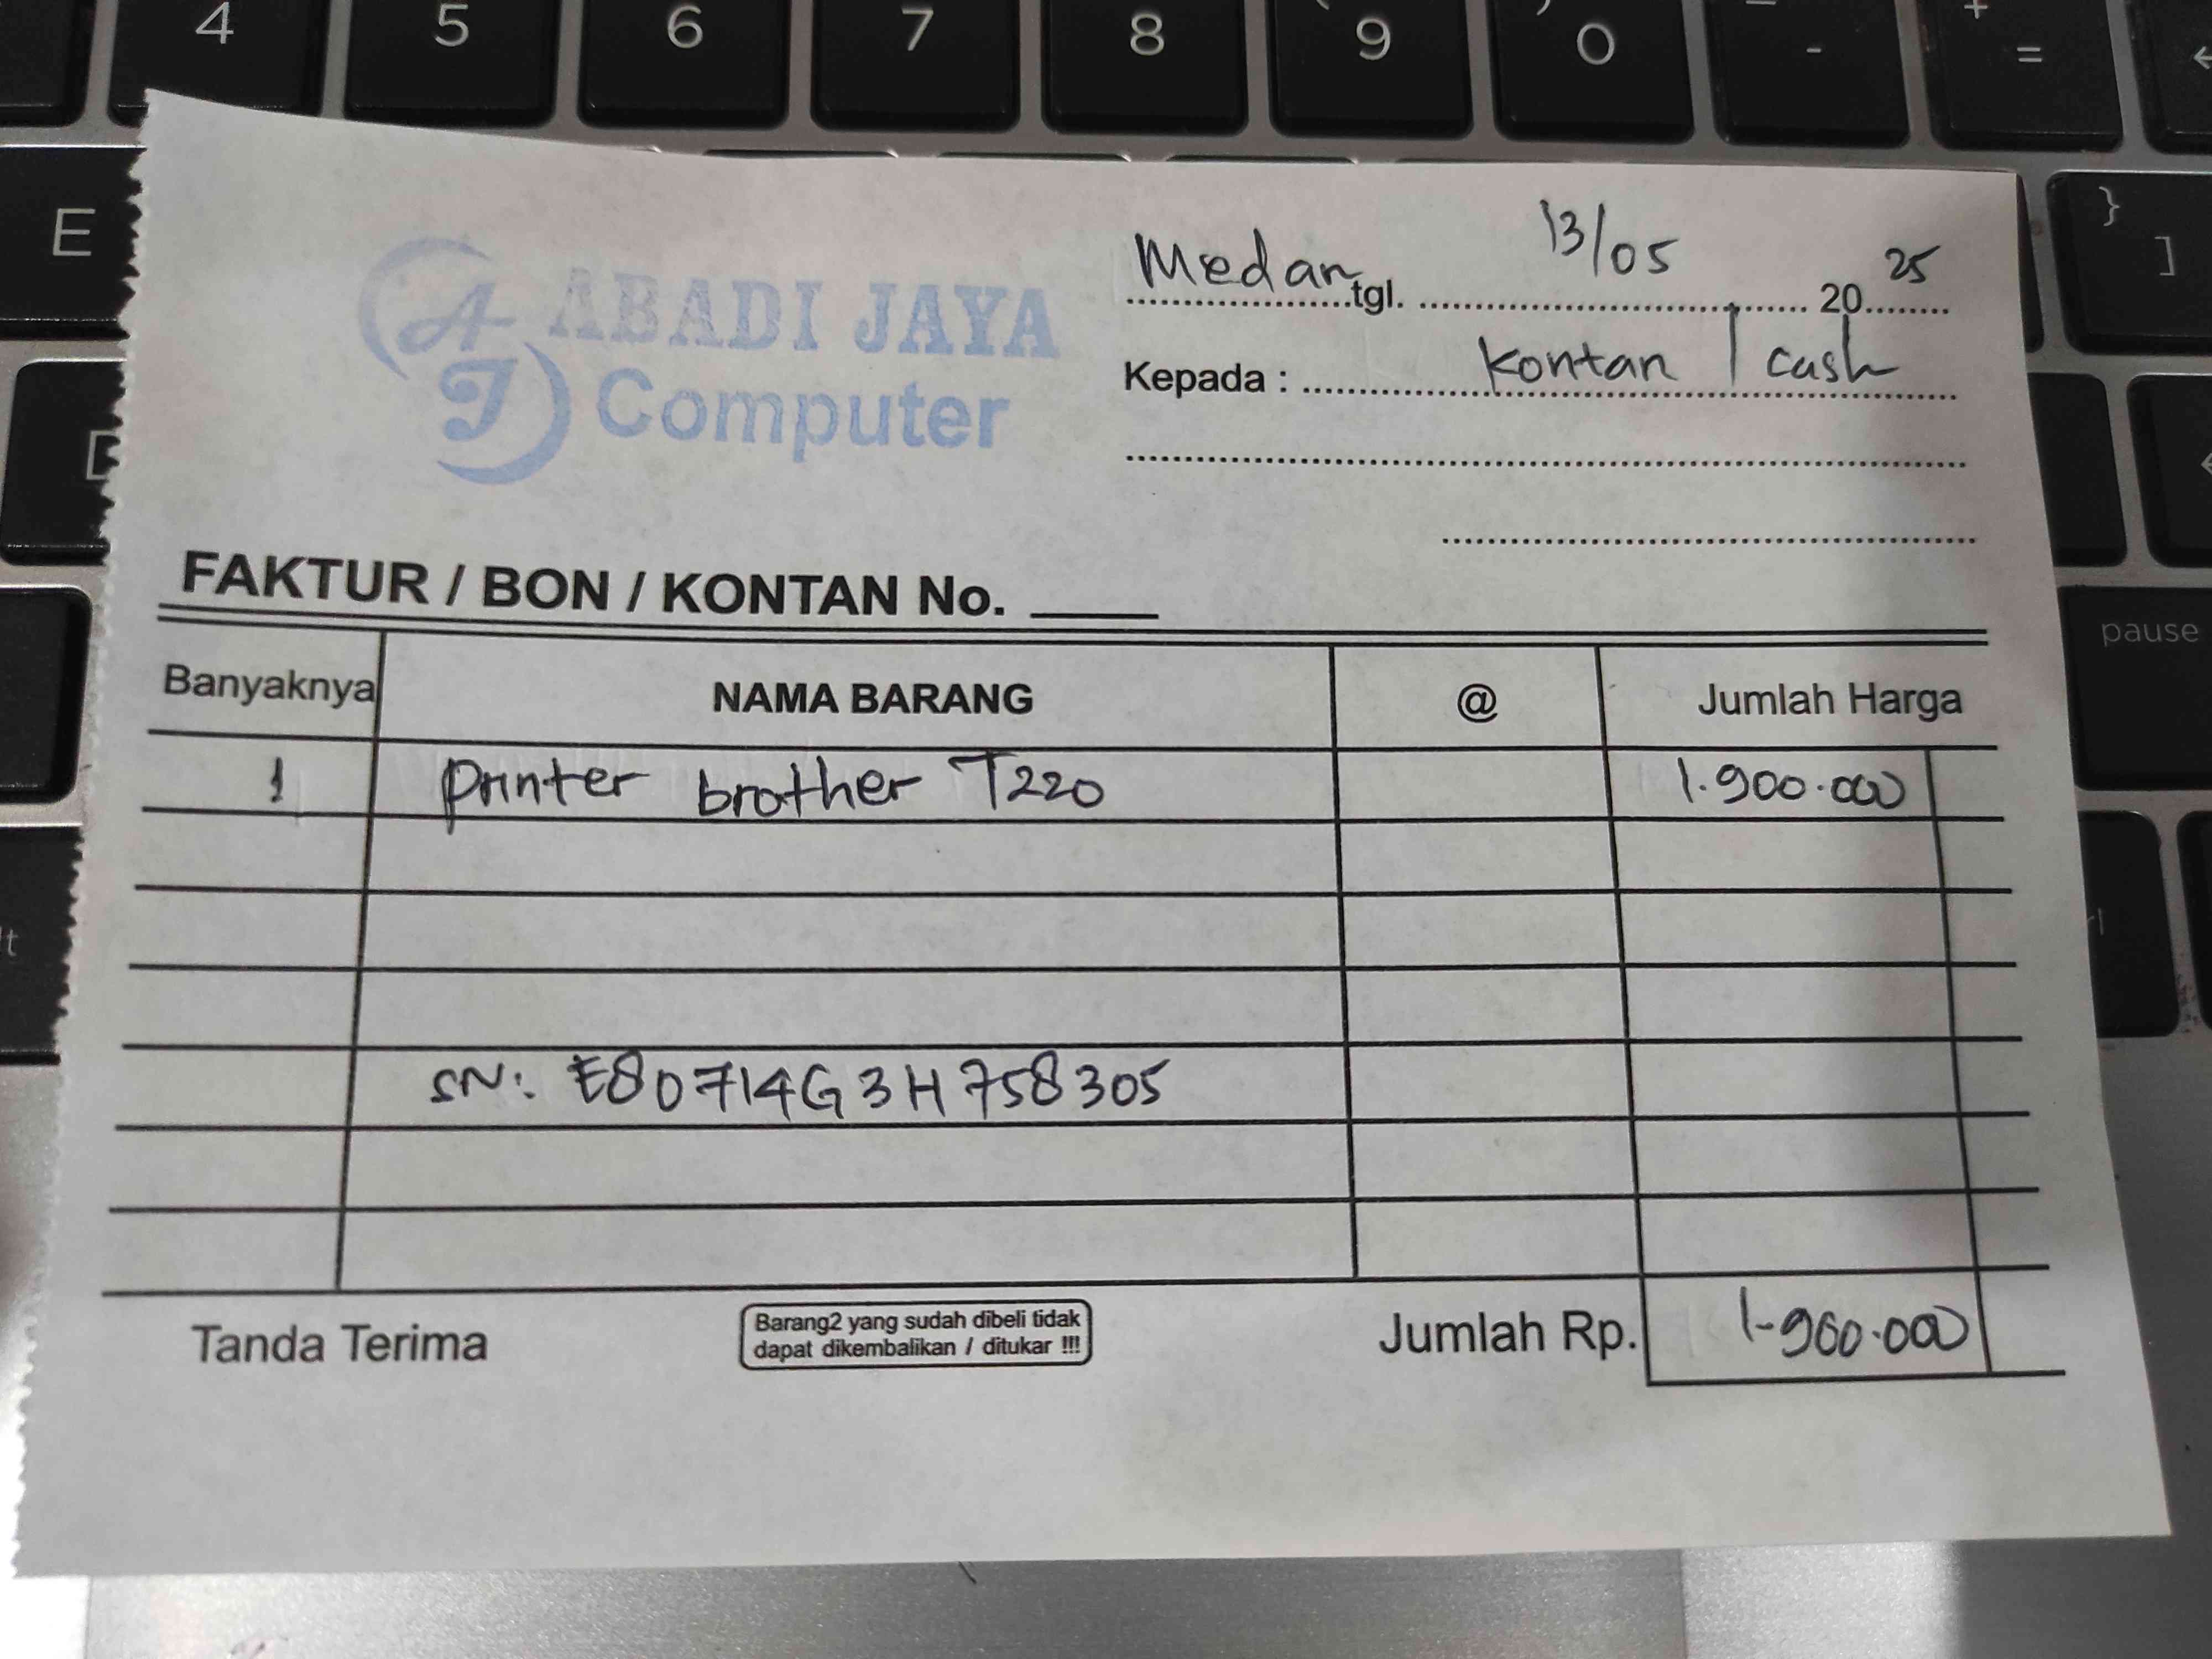 4 5 6 7 8 9 0 - + =
E } ]
ABADI JAYA
Computer
AJ
Medan tgl. 13/05 2025
Kepada : Kontan / cash
FAKTUR / BON / KONTAN No.
pause
Banyaknya NAMA BARANG @ Jumlah Harga
1 Printer brother T220 1.900.000
SN: E80714G3H758305
Tanda Terima
Barang2 yang sudah dibeli tidak
dapat dikembalikan / ditukar !!!
Jumlah Rp. 1-900.000